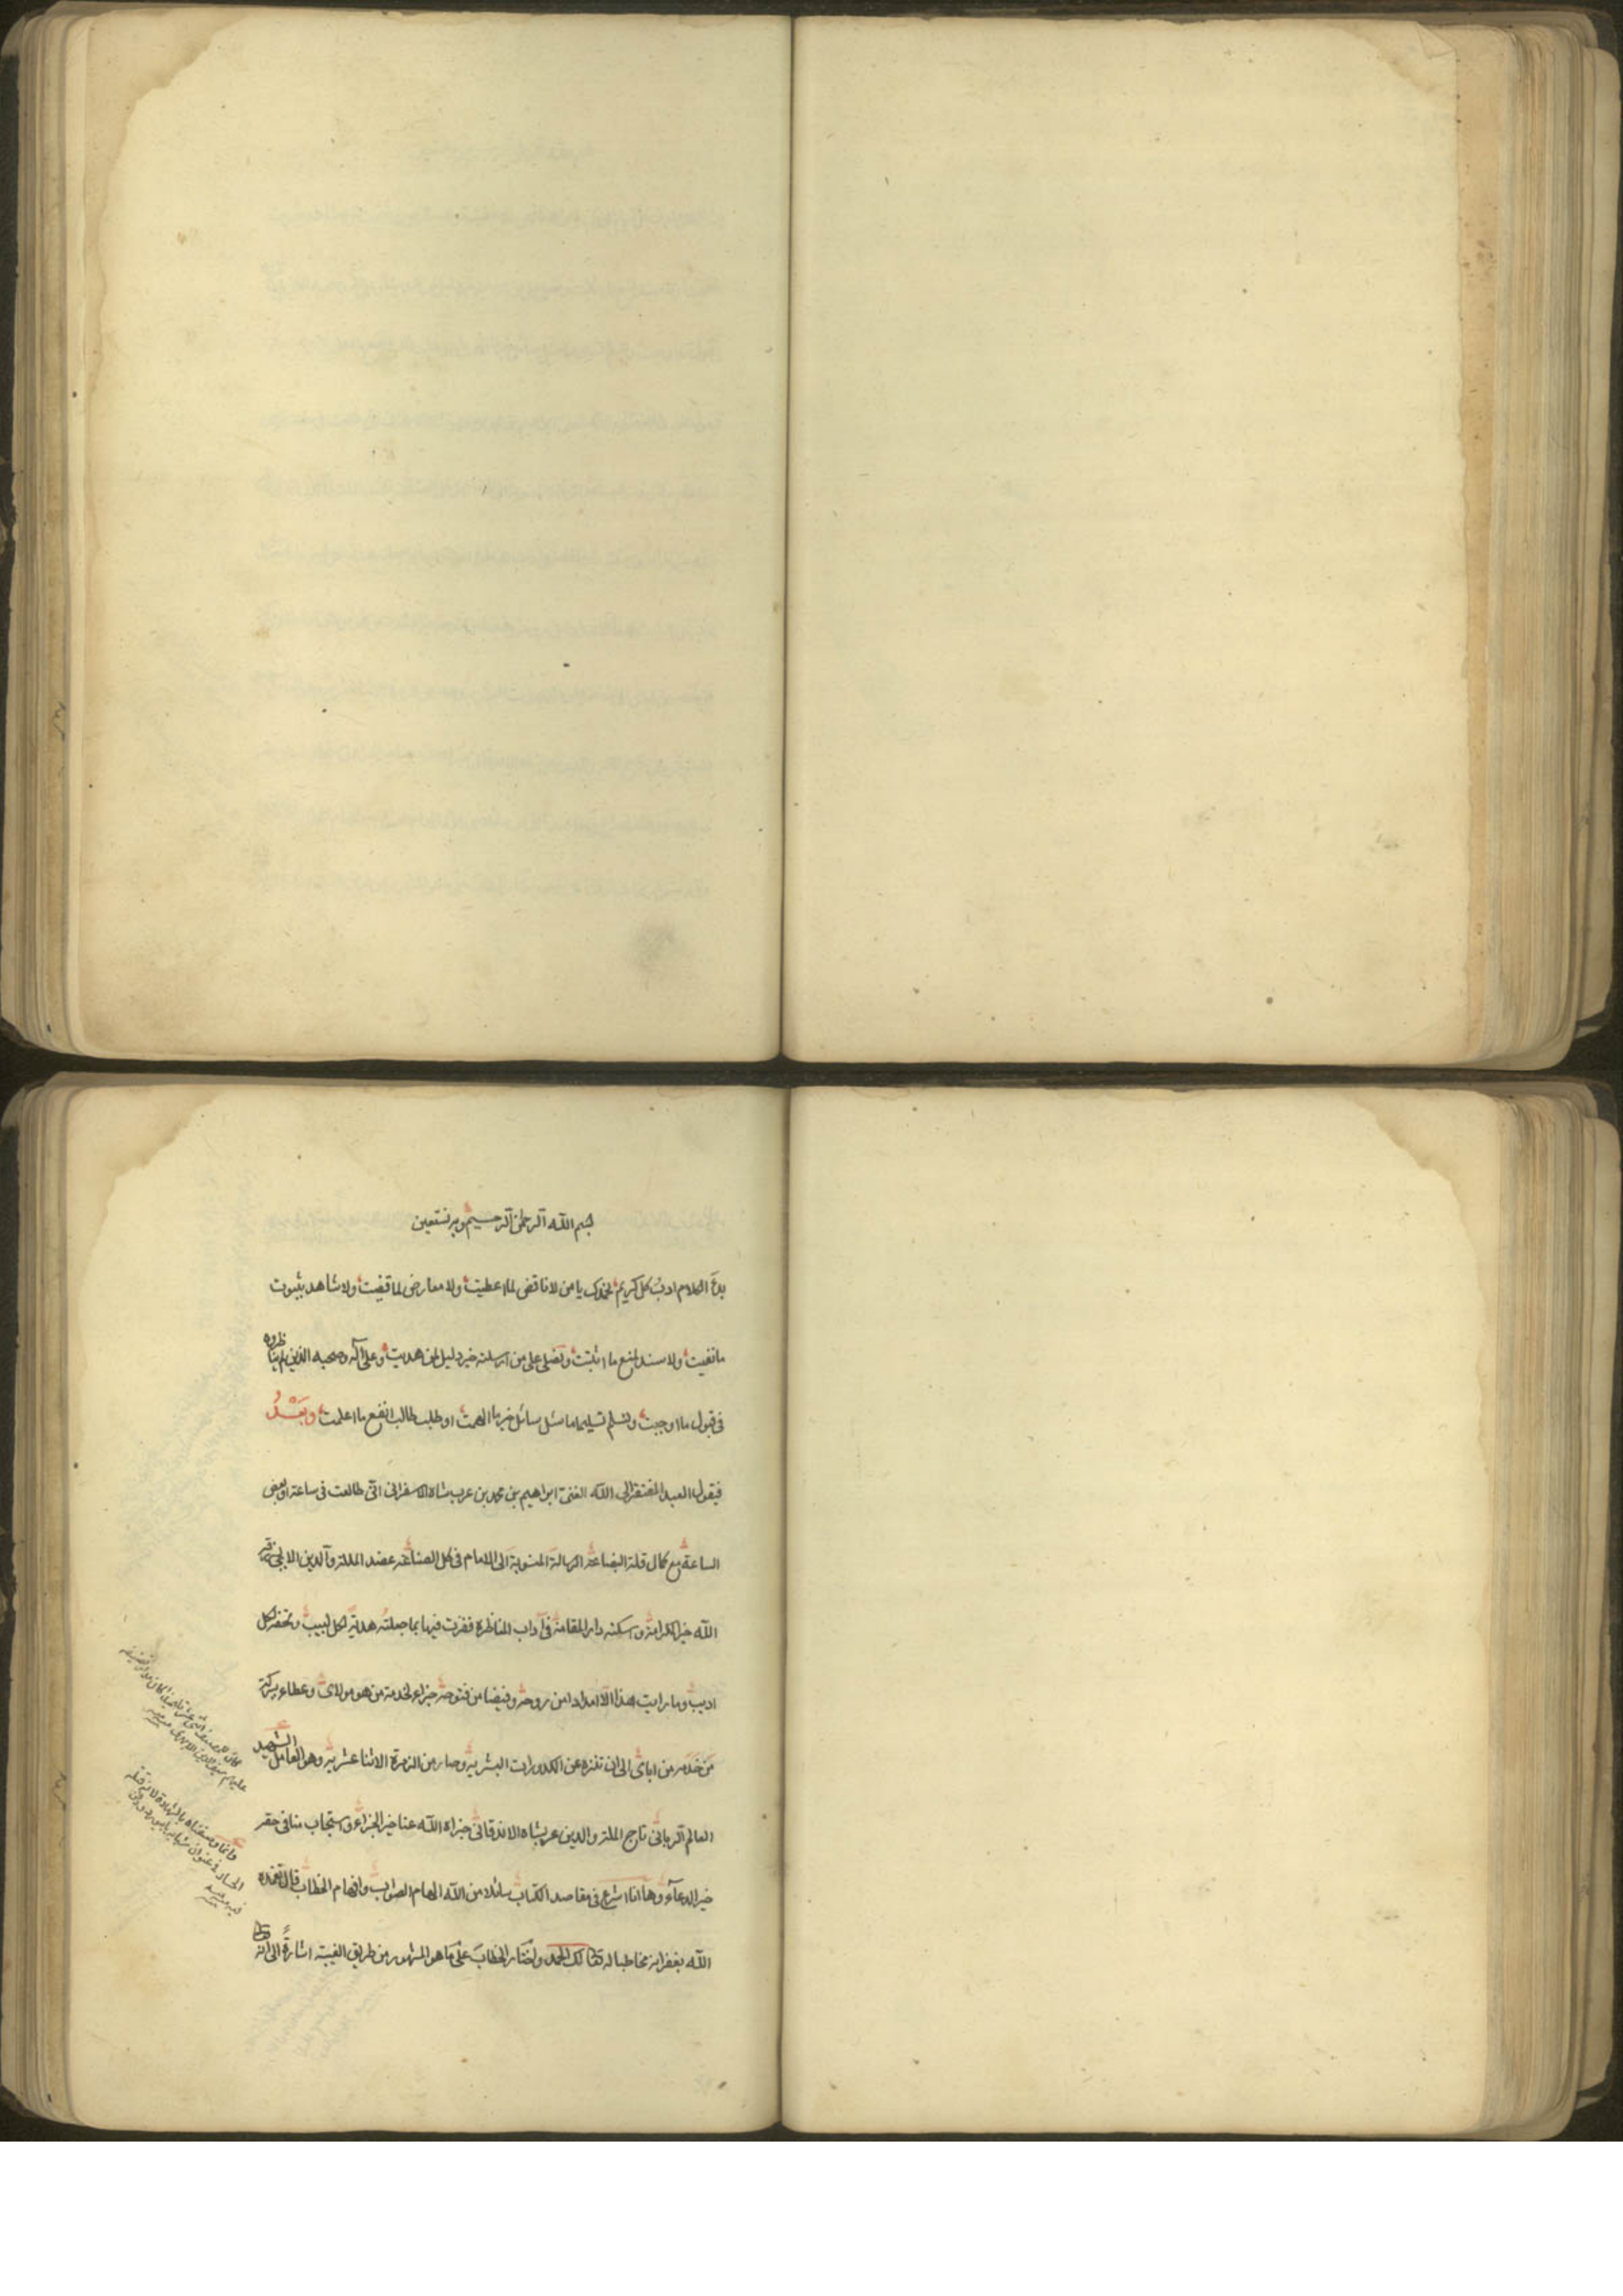 بسم الله الرحمن الرحيم وبه نستعين
بدأ الكلام ادب كل كريم نحمدك يا من لا ناقض لما اعطيت ولا معارض لما قضيت ولا شاهد بثبوت
ما نفيت ولا سند لمنع ما اثبتت ونصلى على من ارسلته خير دليل لمن هديت وعلى آله وصحبه الذين لم يناظروه
فى قبول ما اوجبت ونسلم تسليما ما سئل سائل خير ما الهمت او طلب طالب انفع ما اعلمت وبعد
فيقول العبد المفتقر الى الله الغنى ابراهيم بن محمد بن عرب شاه الاسفرائى انى طالعت فى ساعة او بعض
الساعة مع كمال قلة البضاعة الرسالة المنسوبة الى الامام فى كل الصناعة عضد الملة والدين الايجى
الله خير الكرامة واسكنه دار المقامة فى آداب المناظرة ففزت فيها بما جعلته هدية لكل لبيب وتحفة لكل
اديب وما رايت هذا الا امدادا من روحه وفيضا من فتوحه جزاء لخدمة من هو مولاى وعطاء ببركة
من خدمه من ابائى الى ان تنزه عن الكدورات البشرية وصار من الزمرة الاثنا عشرية وهو العامل الشهيد
العالم الربانى تاج الملة والدين عربشاه الاندقانى جزاه الله عنا خير الجزاء واستجاب منا فى حقه
خير الدعآء وها انا اشرع فى مقاصد الكتاب سائلا من الله الهام الصواب وافهام الخطاب قال تغمده
الله بغفرانه مخاطبا له تعالى لك الحمد واختار الخطاب على ما هو المشهور من طريق الغيبة اشارة الى انه